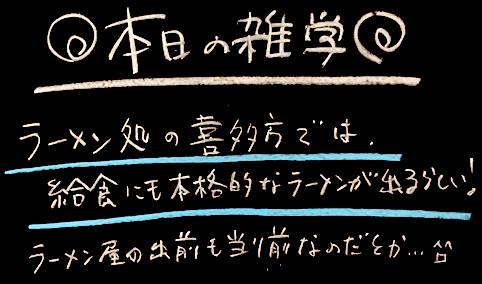 本日の雑学
ラーメン処の喜多方では、
給食にも本格的なラーメンが出るらしい!
ラーメン屋の出前も当り前なのだとか…